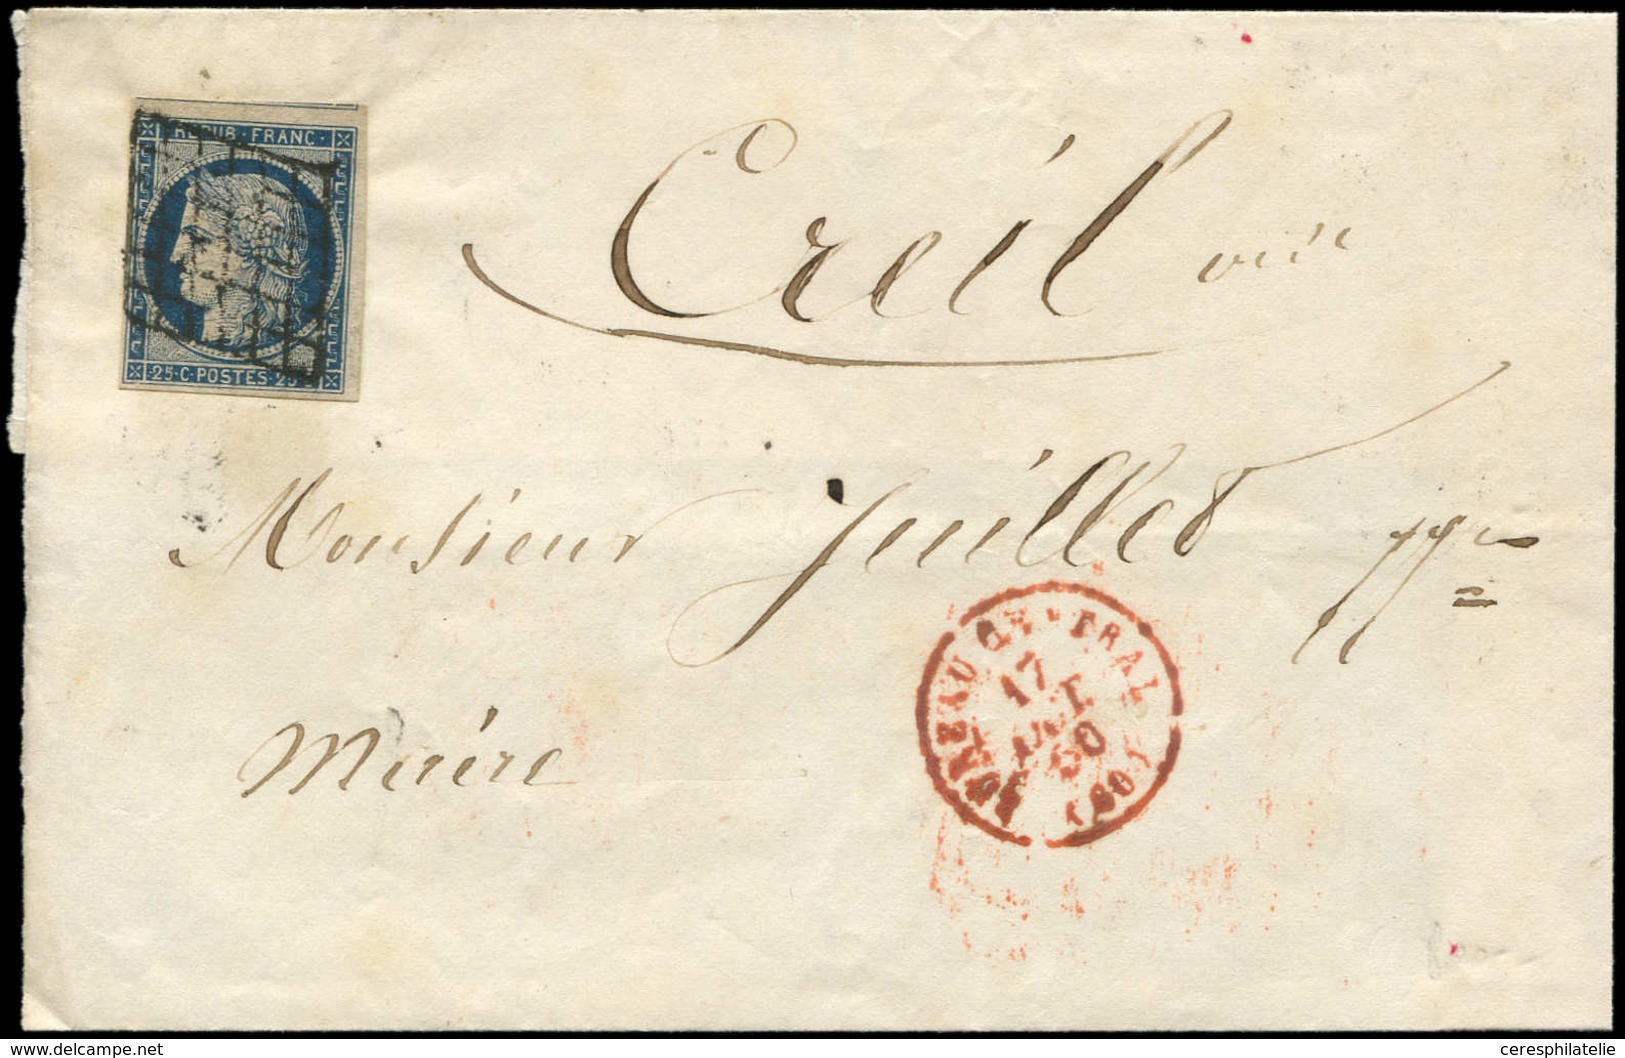 REPUB · FRANC ·
· 25 · C · POSTES · 25 ·
Creil oise
Monsieur Juillet
Maire
BUREAU GÉNÉRAL
17
50
(60)
www.delcampe.net
ceresphilatelie